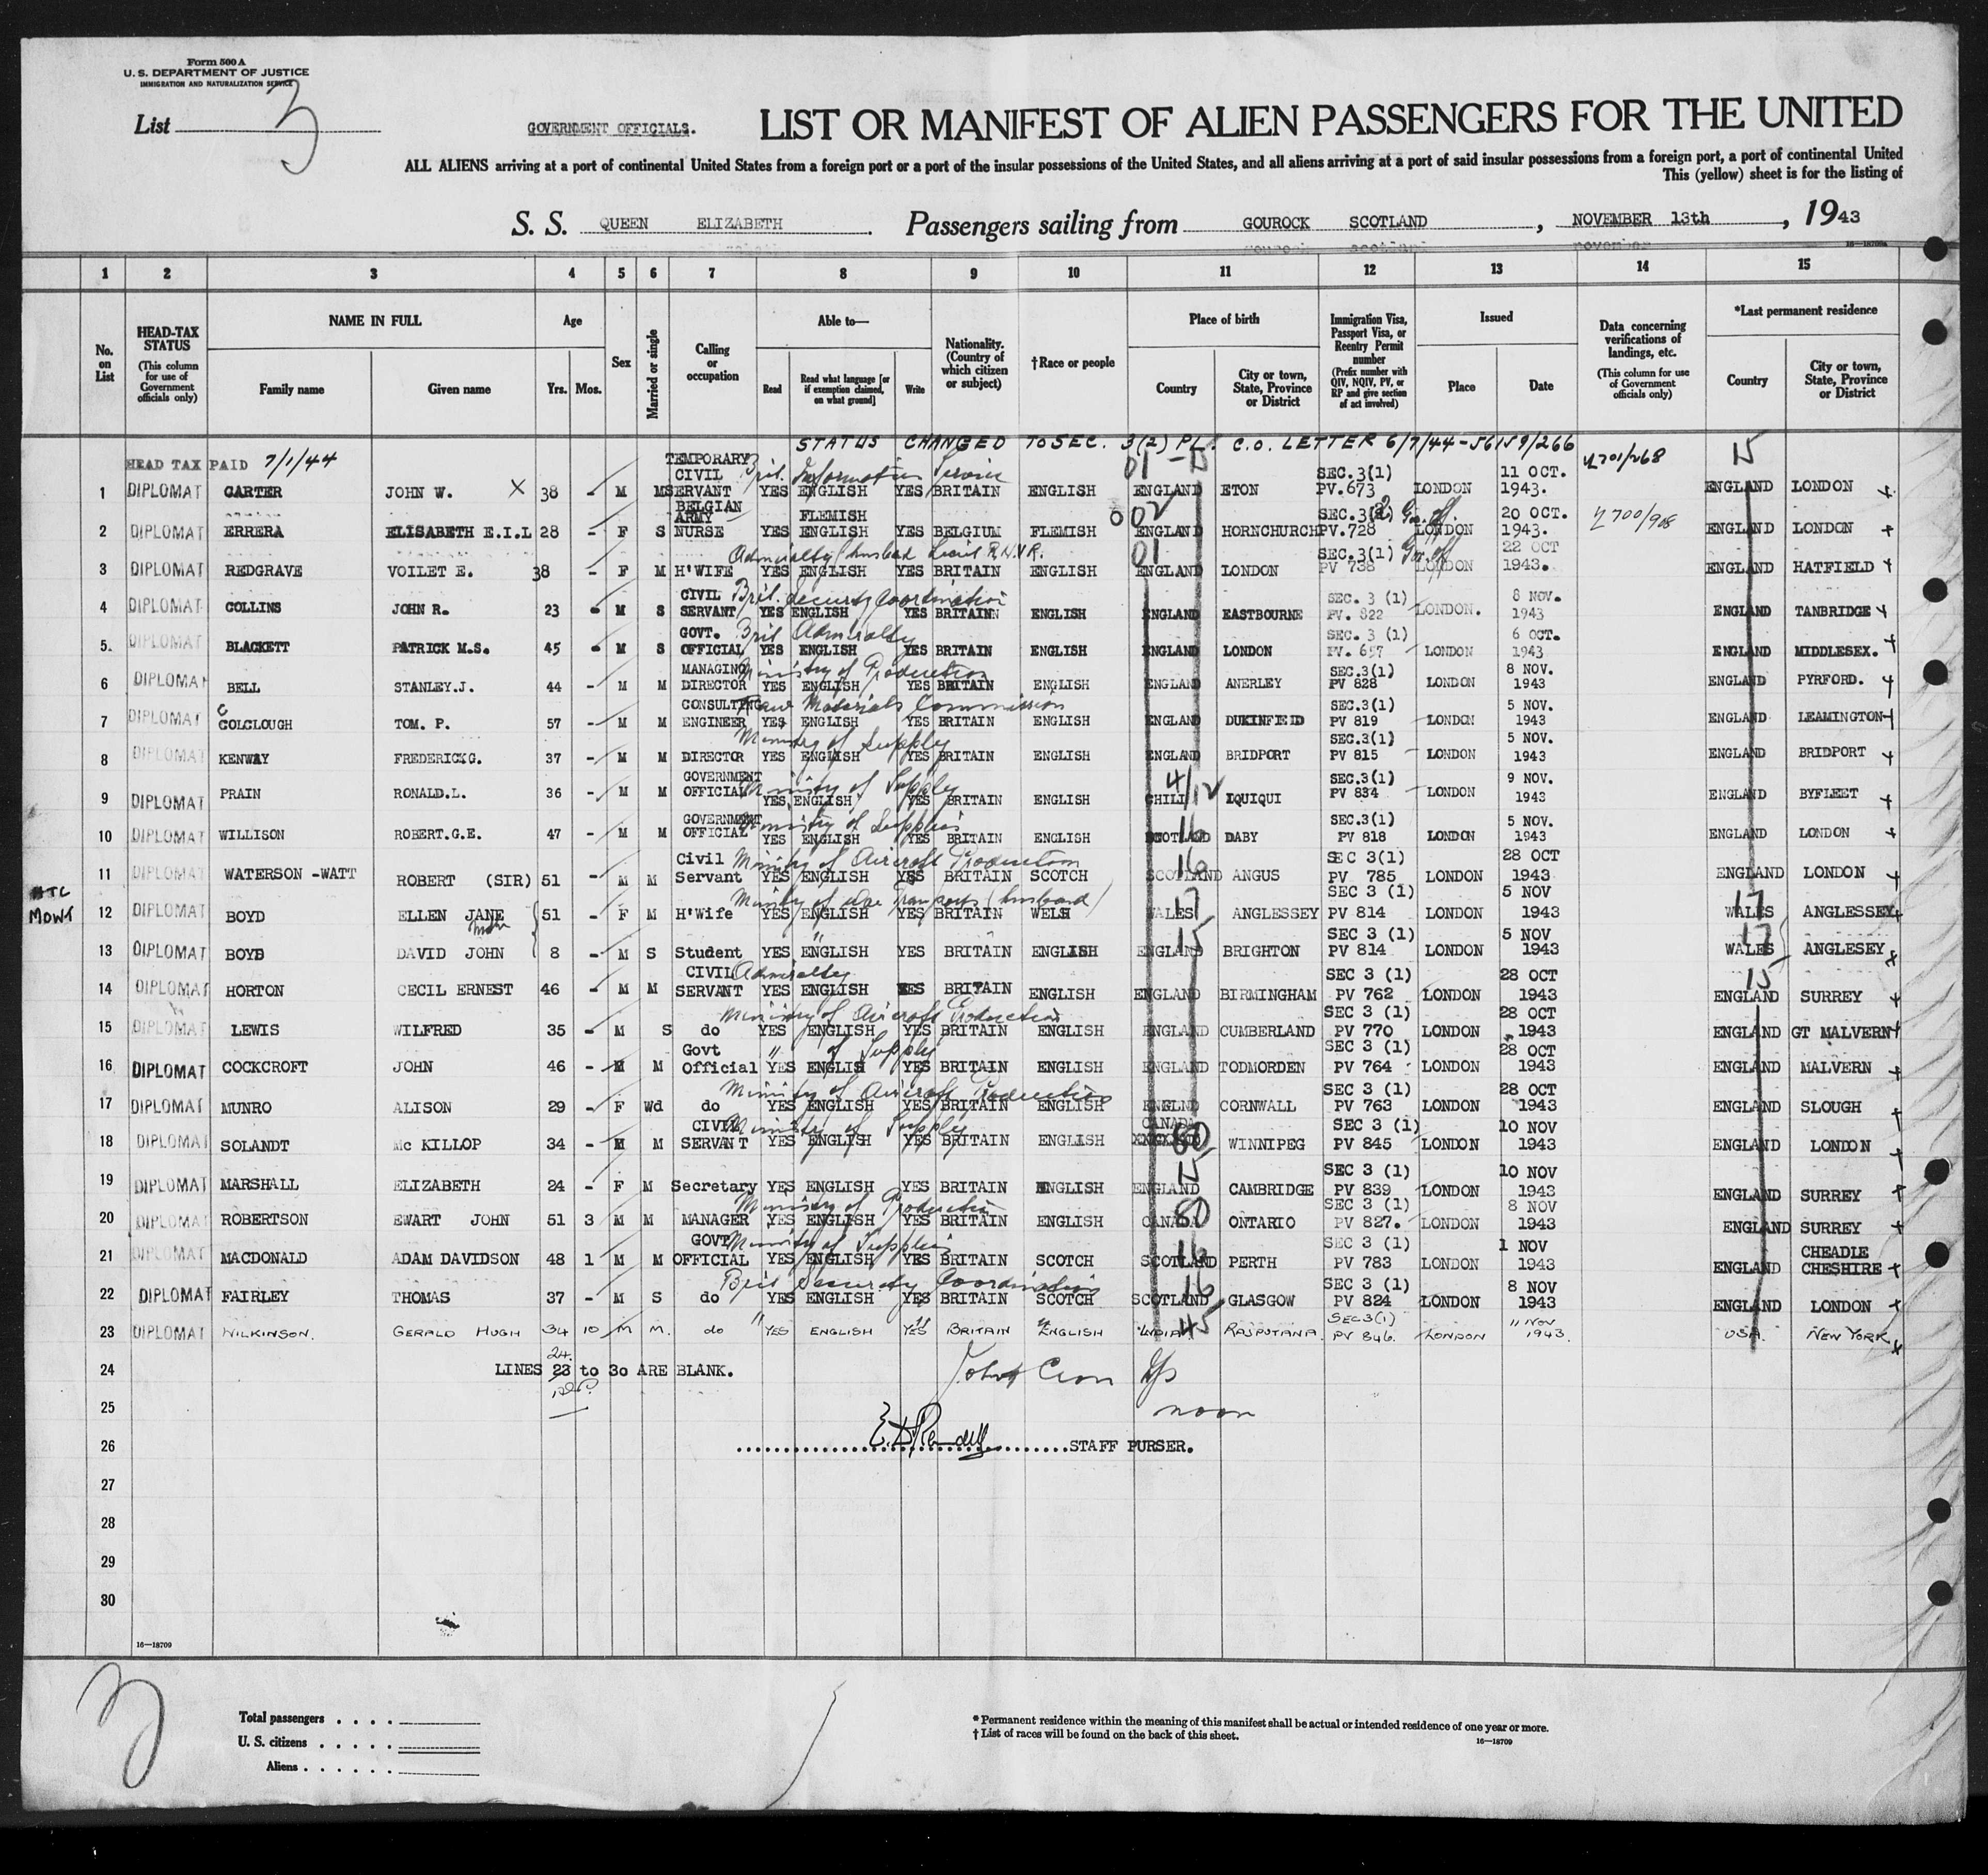 Form 500 A
U. S. DEPARTMENT OF JUSTICE
IMMIGRATION AND NATURALIZATION SERVICE
List 3
GOVERNMENT OFFICIALS.
LIST OR MANIFEST OF ALIEN PASSENGERS FOR THE UNITED
ALL ALIENS arriving at a port of continental United States from a foreign port or a port of the insular possessions of the United States, and all aliens arriving at a port of said insular possessions from a foreign port, a port of continental United
This (yellow) sheet is for the listing of
S. S. QUEEN ELIZABETH. Passengers sailing from GOUROCK SCOTLAND, NOVEMBER 13th, 1943
1 2 3 4 5 6 7 8 9 10 11 12 13 14 15
No. on List
HEAD-TAX STATUS (This column for use of Government officials only)
NAME IN FULL Family name Given name
Age Yrs. Mos.
Sex
Married or single
Calling or occupation
Able to— Read Read what language [or if exemption claimed, on what ground] Write
Nationality. (Country of which citizen or subject)
†Race or people
Place of birth Country City or town, State, Province or District
Immigration Visa, Passport Visa, or Reentry Permit number (Prefix number with QIV, NQIV, PV, or RP and give section of act involved)
Issued Place Date
Data concerning verifications of landings, etc. (This column for use of Government officials only)
*Last permanent residence Country City or town, State, Province or District
STATUS CHANGED TO SEC. 3(2) PL. C.O. LETTER 6/7/44-56159/266
HEAD TAX PAID 7/1/44 01-15 15
TEMPORARY CIVIL Brit. Information Service SEC.3(1) 11 OCT.
1 DIPLOMAT CARTER JOHN W. X 38 - M M SERVANT YES ENGLISH YES BRITAIN ENGLISH ENGLAND ETON PV.673 LONDON 1943. ENGLAND LONDON
BELGIAN ARMY FLEMISH 002 SEC.3(2) 20 OCT.
2 DIPLOMAT ERRERA ELISABETH E.I.L 28 - F S NURSE YES ENGLISH YES BELGIUM FLEMISH ENGLAND HORNCHURCH PV.728 LONDON 1943. ENGLAND LONDON
Admiralty (husband Lieut R.N.V.R. 01 SEC.3(1) 22 OCT
3 DIPLOMAT REDGRAVE VOILET E. 38 - F M H'WIFE YES ENGLISH YES BRITAIN ENGLISH ENGLAND LONDON PV 738 LONDON 1943. ENGLAND HATFIELD
CIVIL Brit. Security Coordination SEC. 3 (1) 8 NOV.
4 DIPLOMAT COLLINS JOHN R. 23 - M S SERVANT YES ENGLISH YES BRITAIN ENGLISH ENGLAND EASTBOURNE PV. 822 LONDON. 1943 ENGLAND TANBRIDGE
GOVT. Brit Admiralty SEC. 3 (1) 6 OCT.
5. DIPLOMAT BLACKETT PATRICK M.S. 45 - M S OFFICIAL YES ENGLISH YES BRITAIN ENGLISH ENGLAND LONDON PV. 657 LONDON 1943 ENGLAND MIDDLESEX.
MANAGING Ministry of Production SEC.3(1) 8 NOV.
6 DIPLOMAT BELL STANLEY.J. 44 - M M DIRECTOR YES ENGLISH YES BRITAIN ENGLISH ENGLAND ANERLEY PV 828 LONDON 1943 ENGLAND PYRFORD.
CONSULTING Raw Materials Commission SEC.3(1) 5 NOV.
7 DIPLOMAT COLCLOUGH TOM. P. 57 - M M ENGINEER YES ENGLISH YES BRITAIN ENGLISH ENGLAND DUKINFIELD PV 819 LONDON 1943 ENGLAND LEAMINGTON
Ministry of Supply SEC.3(1) 5 NOV.
8 DIPLOMAT KENWAY FREDERICK G. 37 - M M DIRECTOR YES ENGLISH YES BRITAIN ENGLISH ENGLAND BRIDPORT PV 815 LONDON 1943 ENGLAND BRIDPORT
GOVERNMENT Ministry of Supply 4/12 SEC.3(1) 9 NOV.
9 DIPLOMAT PRAIN RONALD.L. 36 - M M OFFICIAL YES ENGLISH YES BRITAIN ENGLISH CHILI IQUIQUI PV 834 LONDON 1943 ENGLAND BYFLEET
GOVERNMENT Ministry of Supplies 16 SEC.3(1) 5 NOV.
10 DIPLOMAT WILLISON ROBERT.G.E. 47 - M M OFFICIAL YES ENGLISH YES BRITAIN ENGLISH SCOTLAND DABY PV 818 LONDON 1943 ENGLAND LONDON
Civil Ministry of Aircraft Production 16 SEC 3(1) 28 OCT
11 DIPLOMAT WATERSON -WATT ROBERT (SIR) 51 - M M Servant YES ENGLISH YES BRITAIN SCOTCH SCOTLAND ANGUS PV 785 LONDON 1943 ENGLAND LONDON
MOWT Ministry of War Transport (husband) 17 SEC 3 (1) 5 NOV 17
12 DIPLOMAT BOYD ELLEN JANE 51 - F M H'Wife YES ENGLISH YES BRITAIN WELSH WALES ANGLESSEY PV 814 LONDON 1943 WALES ANGLESSEY
15 SEC 3 (1) 5 NOV 17
13 DIPLOMAT BOYD DAVID JOHN 8 - M S Student YES ENGLISH YES BRITAIN ENGLISH ENGLAND BRIGHTON PV 814 LONDON 1943 WALES ANGLESEY
CIVIL Admiralty SEC 3 (1) 28 OCT 15
14 DIPLOMAT HORTON CECIL ERNEST 46 - M M SERVANT YES ENGLISH YES BRITAIN ENGLISH ENGLAND BIRMINGHAM PV 762 LONDON 1943 ENGLAND SURREY
Ministry of Aircraft Production SEC 3 (1) 28 OCT
15 DIPLOMAT LEWIS WILFRED 35 - M S do YES ENGLISH YES BRITAIN ENGLISH ENGLAND CUMBERLAND PV 770 LONDON 1943 ENGLAND GT MALVERN
Govt " of Supply SEC 3 (1) 28 OCT
16 DIPLOMAT COCKCROFT JOHN 46 - M M Official YES ENGLIS YES BRITAIN ENGLISH ENGLAND TODMORDEN PV 764 LONDON 1943 ENGLAND MALVERN
Ministry of Aircraft Production SEC 3 (1) 28 OCT
17 DIPLOMAT MUNRO ALISON 29 - F Wd do YES ENGLISH YES BRITAIN ENGLISH ENELND CORNWALL PV 763 LONDON 1943 ENGLAND SLOUGH
CIVIL Ministry of Supply CANADA 80 SEC 3 (1) 10 NOV
18 DIPLOMAT SOLANDT Mc KILLOP 34 - M M SERVANT YES ENGLISH YES BRITAIN ENGLISH WINNIPEG PV 845 LONDON 1943 ENGLAND LONDON
15 SEC 3 (1) 10 NOV
19 DIPLOMAT MARSHALL ELIZABETH 24 - F M Secretary YES ENGLISH YES BRITAIN ENGLISH ENGLAND CAMBRIDGE PV 839 LONDON 1943 ENGLAND SURREY
Ministry of Production 80 SEC 3 (1) 8 NOV
20 DIPLOMAT ROBERTSON EWART JOHN 51 3 M M MANAGER YES ENGLISH YES BRITAIN ENGLISH CANADA ONTARIO PV 827. LONDON 1943 ENGLAND SURREY
GOVT Ministry of Supplies 16 SEC 3 (1) 1 NOV CHEADLE
21 DIPLOMAT MACDONALD ADAM DAVIDSON 48 1 M M OFFICIAL YES ENGLISH YES BRITAIN SCOTCH SCOTLAND PERTH PV 783 LONDON 1943 ENGLAND CHESHIRE
Brit Security Coordination 16 SEC 3 (1) 8 NOV
22 DIPLOMAT FAIRLEY THOMAS 37 - M S do YES ENGLISH YES BRITAIN SCOTCH SCOTLAND GLASGOW PV 824 LONDON 1943 ENGLAND LONDON
" " " 45 SEC 3(1) 11 NOV
23 DIPLOMAT WILKINSON. GERALD HUGH 34 10 M M. do YES ENGLISH YES BRITAIN ENGLISH INDIA RAJPUTANA. PV 846. LONDON 1943. USA. NEW YORK
24.
24 LINES 23 to 30 ARE BLANK.
25 noon
26 STAFF PURSER.
27
28
29
30
16—18709
3
Total passengers
U. S. citizens
Aliens
* Permanent residence within the meaning of this manifest shall be actual or intended residence of one year or more.
† List of races will be found on the back of this sheet.
16—18709